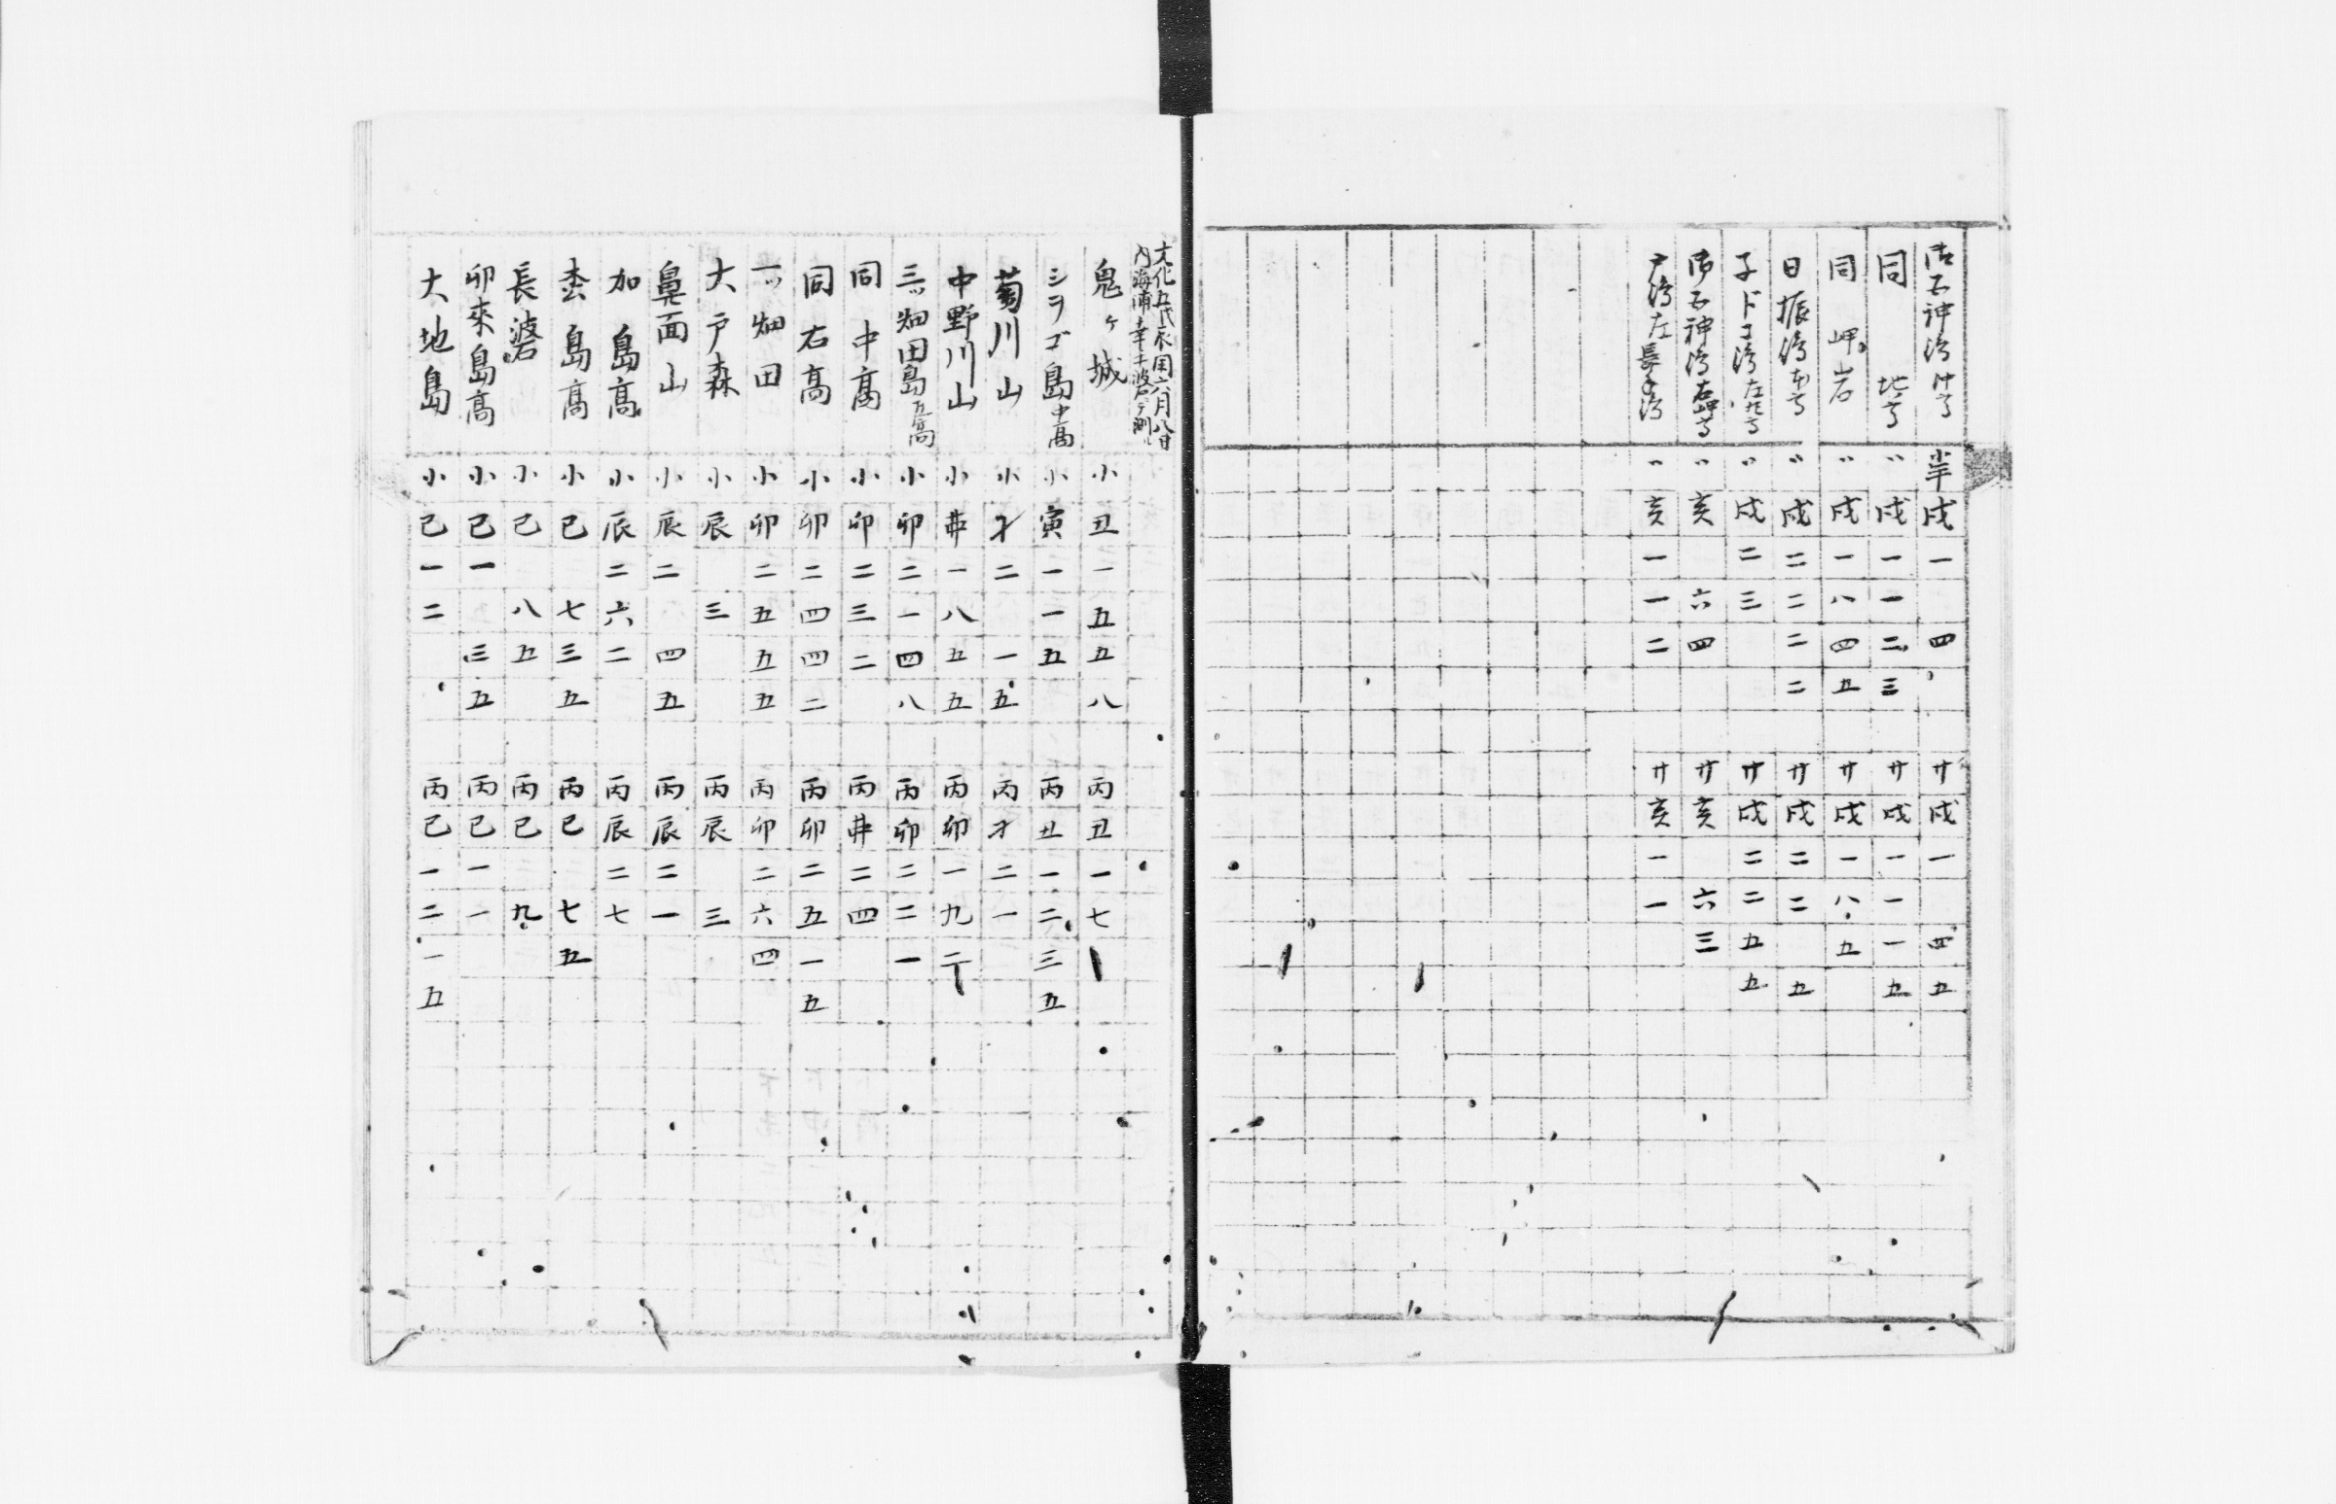 御石神湾汁高 小半戌一〇四 廿戌一〇四五
同 地高 〃戌一一二三 廿戌一一一五
同 岬岩 〃戌一八四五 廿戌一八五
日振湾 〃戌二二二二 廿戌二二〇五
子ドコ湾 〃戌二三 廿戌二二五五
御石神湾 〃亥 六四 廿亥 六三
戸湾左長手湾 〃亥一一二 廿亥一一
文化五戊辰閏六月八日
内海浦
鬼ヶ城 小丑一五五八 丙丑一七
シヲゴ島中高 小寅一一五 丙丑一二三五
菊川山 小才二 一五 丙才二一
中野川山 小卯一八五五 丙卯一九二
三ツ畑田島左高 小卯二一四八 丙卯二二一
同中高 小卯二三二 丙卯二四
同右高 小卯二四四二 丙卯二五一五
一ツ畑田 小卯二五五五 丙卯二六四
大戸森 小辰 三 丙辰 三
鼻面山 小辰二 四五 丙辰二一
加島高 小辰二六二 丙辰二七
島高 小巳 七三五 丙巳 七五
長礁 小巳 八五 丙巳 九
卯来島高 小巳一 三五 丙巳一一
大地島 小巳一二 丙巳一二一五